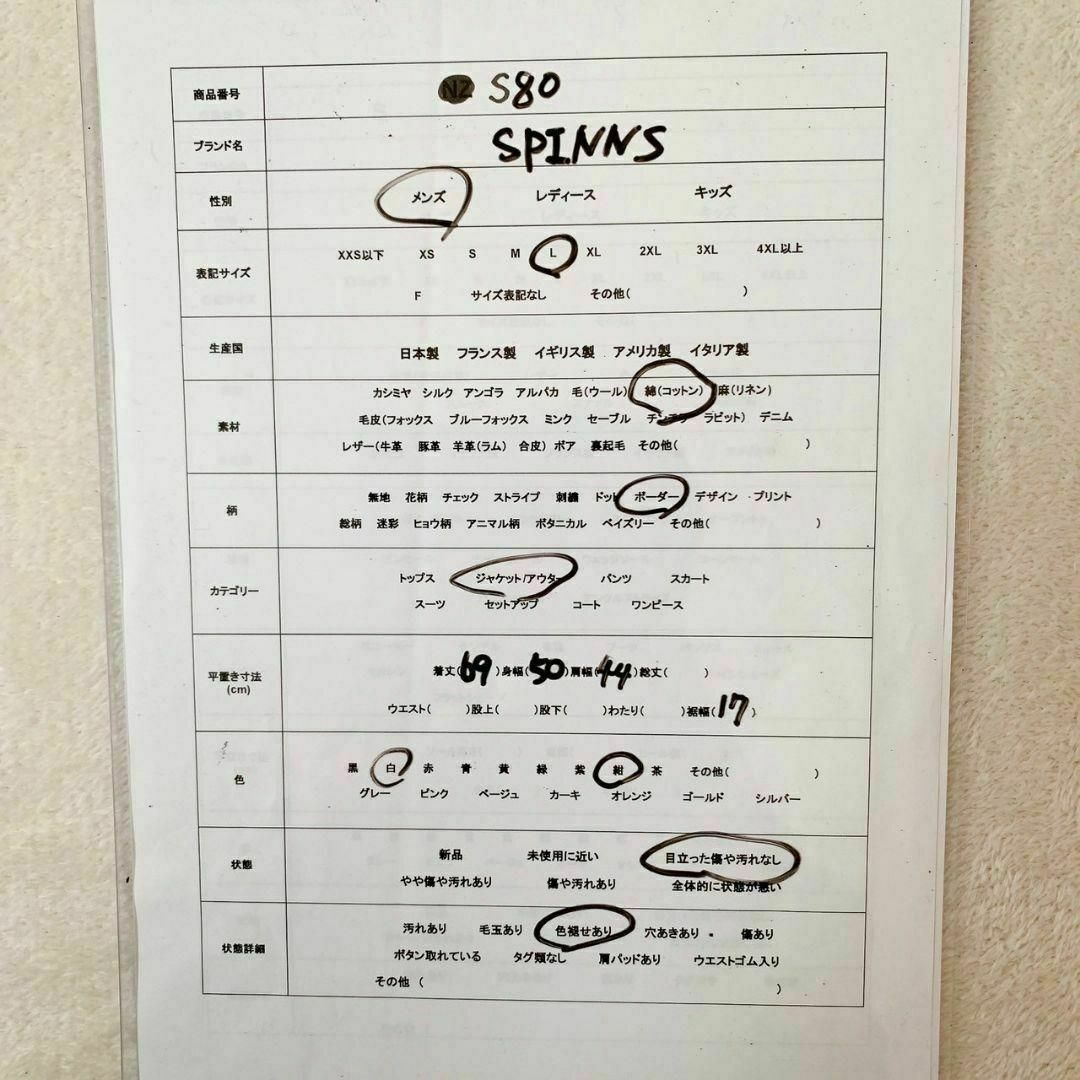 商品番号 N2 S80
ブランド名 SPINNS
性別 メンズ レディース キッズ
XXS以下 XS S M L XL 2XL 3XL 4XL以上
表記サイズ
F サイズ表記なし その他( )
生産国 日本製 フランス製 イギリス製 アメリカ製 イタリア製
カシミヤ シルク アンゴラ アルパカ 毛(ウール) 綿(コットン) 麻(リネン)
素材 毛皮(フォックス ブルーフォックス ミンク セーブル チンチラ ラビット) デニム
レザー(牛革 豚革 羊革(ラム) 合皮) ボア 裏起毛 その他( )
無地 花柄 チェック ストライプ 刺繍 ドット ボーダー デザイン・プリント
柄
総柄 迷彩 ヒョウ柄 アニマル柄 ボタニカル ペイズリー その他( )
トップス ジャケット/アウター パンツ スカート
カテゴリー
スーツ セットアップ コート ワンピース
平置き寸法 着丈(69)身幅(50)肩幅(44)総丈( )
(cm)
ウエスト( )股上( )股下( )わたり( )裾幅(17)
黒 白 赤 青 黄 緑 紫 紺 茶 その他( )
色
グレー ピンク ベージュ カーキ オレンジ ゴールド シルバー
新品 未使用に近い 目立った傷や汚れなし
状態
やや傷や汚れあり 傷や汚れあり 全体的に状態が悪い
汚れあり 毛玉あり 色褪せあり 穴あきあり・ 傷あり
状態詳細 ボタン取れている タグ類なし 肩パッドあり ウエストゴム入り
その他 ( )